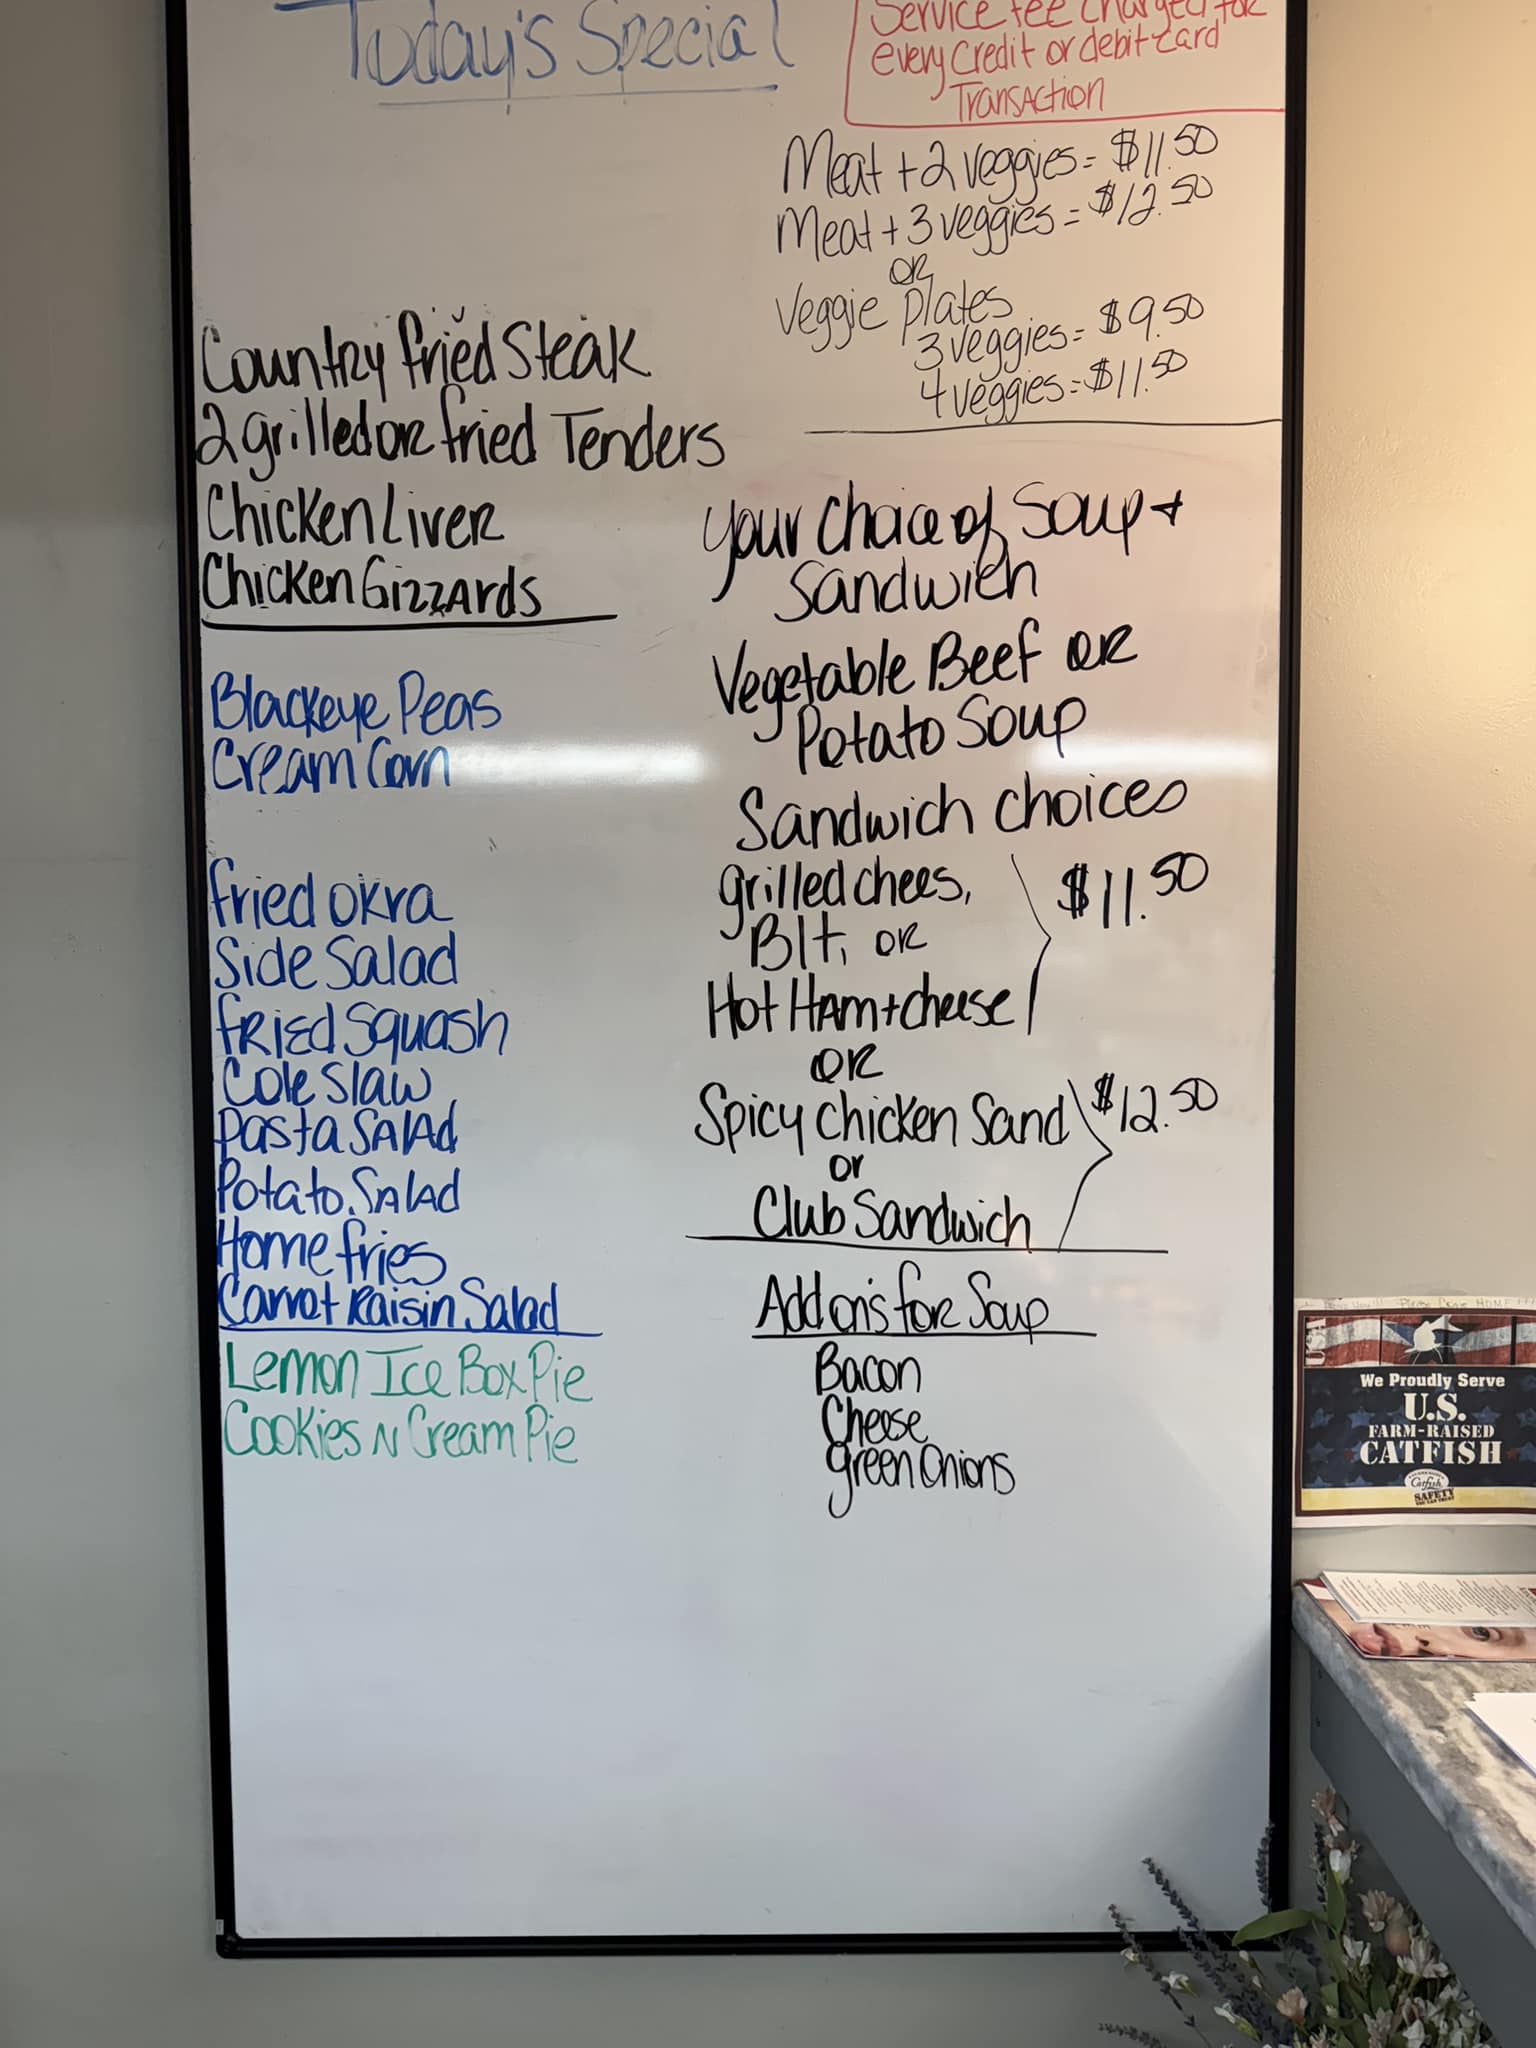 Today's Special
Service fee charged for
every credit or debit card
Transaction
Meat + 2 veggies = $11.50
Meat + 3 veggies = $12.50
OR
Veggie Plates
3 veggies = $9.50
4 veggies = $11.50
Country fried Steak
2 grilled or fried Tenders
Chicken Liver
Chicken Gizzards
Blackeye Peas
Cream Corn
fried okra
Side Salad
fried Squash
Cole Slaw
Pasta Salad
Potato Salad
Home fries
Carrot Raisin Salad
Lemon Ice Box Pie
Cookies N Cream Pie
your choice of Soup +
Sandwich
Vegetable Beef OR
Potato Soup
Sandwich choices
grilled chees,
Blt, OR
Hot Ham + cheese
$11.50
OR
Spicy chicken Sand
or
Club Sandwich
$12.50
Add on's for Soup
Bacon
Cheese
green Onions
USA
We Proudly Serve
U.S.
FARM-RAISED
CATFISH
Catfish
SAFETY